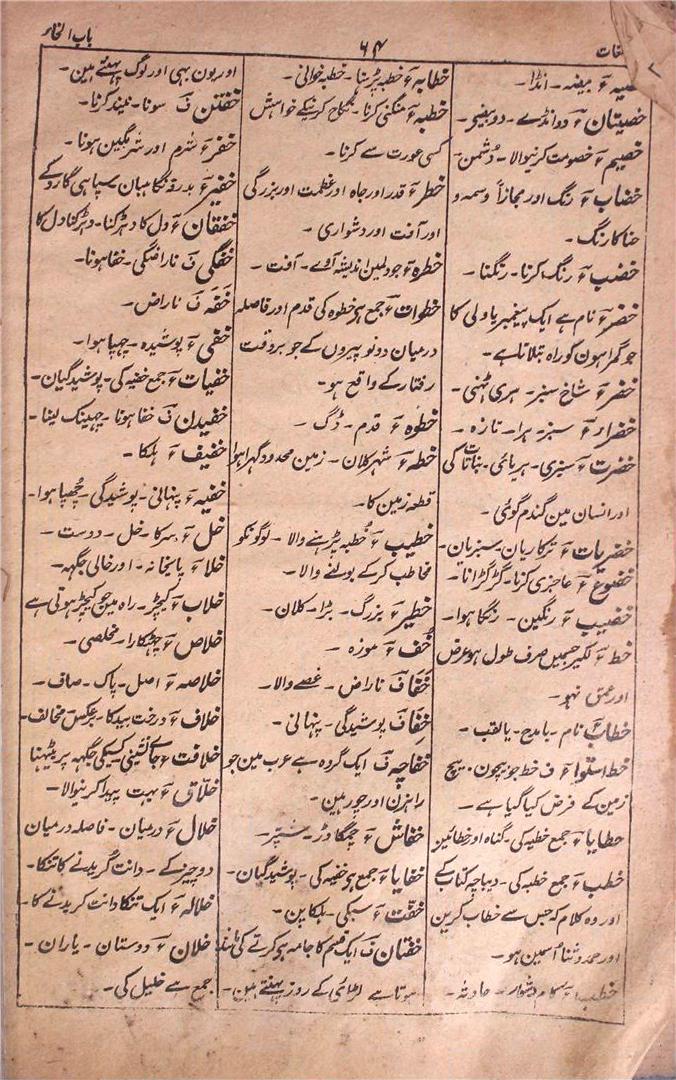 باب الخاء
۶۴
لغات
خصیہ ع بیضہ۔ انڈا۔
خصیتان ع دو انڈے۔ دو بیضے۔
خصیم ع خصومت کرنیوالا۔ دشمن۔
خضاب ع رنگ اور مجازاً وسمہ و
حنا کا رنگ۔
خضب ع رنگ کرنا۔ رنگنا۔
خضر ع نام ہے ایک پیغمبر یا ولی کا
جو گمراہون کو راہ بتلاتا ہے۔
خضر ع شاخ سبز۔ ہری ٹہنی۔
خضراء ع سبز۔ ہرا۔ تازہ۔
خضرت ع سبزی۔ ہریائی۔ نباتات کی
اور انسان مین گندم گوئی۔
خضریات ع ترکاریان۔ سبزیان۔
خضوع ع عاجزی کرنا۔ گڑگڑانا۔
خضیب ع رنگین۔ رنگا ہوا۔
خط ع لکیر جسمیں صرف طول ہو عرض
اور عمق نہو۔
خطاب ع نام۔ بامدح۔ یا لقب۔
خط استوا ع ف خط جو بیچون بیچ
زمین کے فرض کیا گیا ہے۔
خطایا ع جمع خطیہ کی۔ گناہ اور خطائیں
خطب ع جمع خطبہ کی۔ دیباچہ کتاب کے
اور وہ کلام کہ جس سے خطاب کرین
اور حمد و ثنا اسمین ہو۔
خطب ع کام دشوار۔ حادثہ۔
خطابہ ع خطبہ پڑہنا۔ خطبہ خوانی۔
خطبہ ع منگنی کرنا۔ نکاح کرنیکے خواہش
کسی عورت سے کرنا۔
خطر ع قدر اور جاہ اور عظمت اور بزرگی
اور آفت اور دشواری۔
خطرہ ع جو دلمین اندیشہ آوے۔ آفت۔
خطوات ع جمع ہے خطوہ کی قدم اور فاصلہ
درمیان دونو پیروں کے جو بروقت
رفتار کے واقع ہو۔
خطوہ ع قدم۔ ڈگ۔
خطہ ع شہر کلان۔ زمین محدود گہرا ہوا
قطعہ زمین کا۔
خطیب ع خطبہ پڑہنے والا۔ لوگونکو
مخاطب کر کے بولنے والا۔
خطیر ع بزرگ۔ بڑا۔ کلان۔
خف ع موزہ۔
خفا ف ناراض۔ غصے والا۔
خفا ف پوشیدگی۔ پنہانی۔
خفاجہ ف ایک گروہ ہے عرب مین جو
راہزن اور چور ہین۔
خفاش ع چمگادڑ۔ شپر۔
خفایا ع جمع ہے خفیہ کی۔ پوشیدگیان۔
خفت ع سبکی۔ ہلکا پن۔
خفتان ف ایک قسم کا جامہ ہے کرتے کی مانند
ہوتا ہے لڑائی کے روز پہنتے ہین۔
اور یون بہی اور لوگ پہنتے ہین۔
خفتن ف سونا۔ نیند کرنا۔
خفر ع شرم اور شرمگین ہونا۔
خفیر ع بدرقہ نگاہبان۔ سپاہی گارد کے
خفقان ع دل کا دہڑکنا۔ دہڑکنا دل کا
خفگی ف ناراضگی۔ خفا ہونا۔
خفہ ف ناراض۔
خفی ع پوشیدہ۔ چہپا ہوا۔
خفیات ع جمع خفیہ کی۔ پوشیدگیان۔
خفیدن ف خفا ہونا۔ چہینک لینا۔
خفیف ع ہلکا۔
خفیہ ع پنہانی۔ پوشیدگی۔ چھپا ہوا۔
خل ع سرکا۔ خل۔ دوست۔
خلاء ع پائخانہ۔ اور خالی جگہہ۔
خلاب ع کیچڑ۔ راہ مین جو کیچڑ ہوتی ہے
خلاص ع چھٹکارا۔ مخلصی۔
خلاصہ ع اصل۔ پاک۔ صاف۔
خلاف ع درخت بید کا۔ برعکس مخالف۔
خلافت ع جانشینی کسیکی جگہہ پر بیٹہنا
خلاق ع بہت پیدا کرنیوالا۔
خلال ع درمیان۔ فاصلہ درمیان
دو چیز کے۔ دانت کریدنے کا تنکا۔
خلالہ ع ایک تنکا دانت کریدنے کا۔
خلان ع دوستان۔ یاران۔
جمع ہے خلیل کی۔